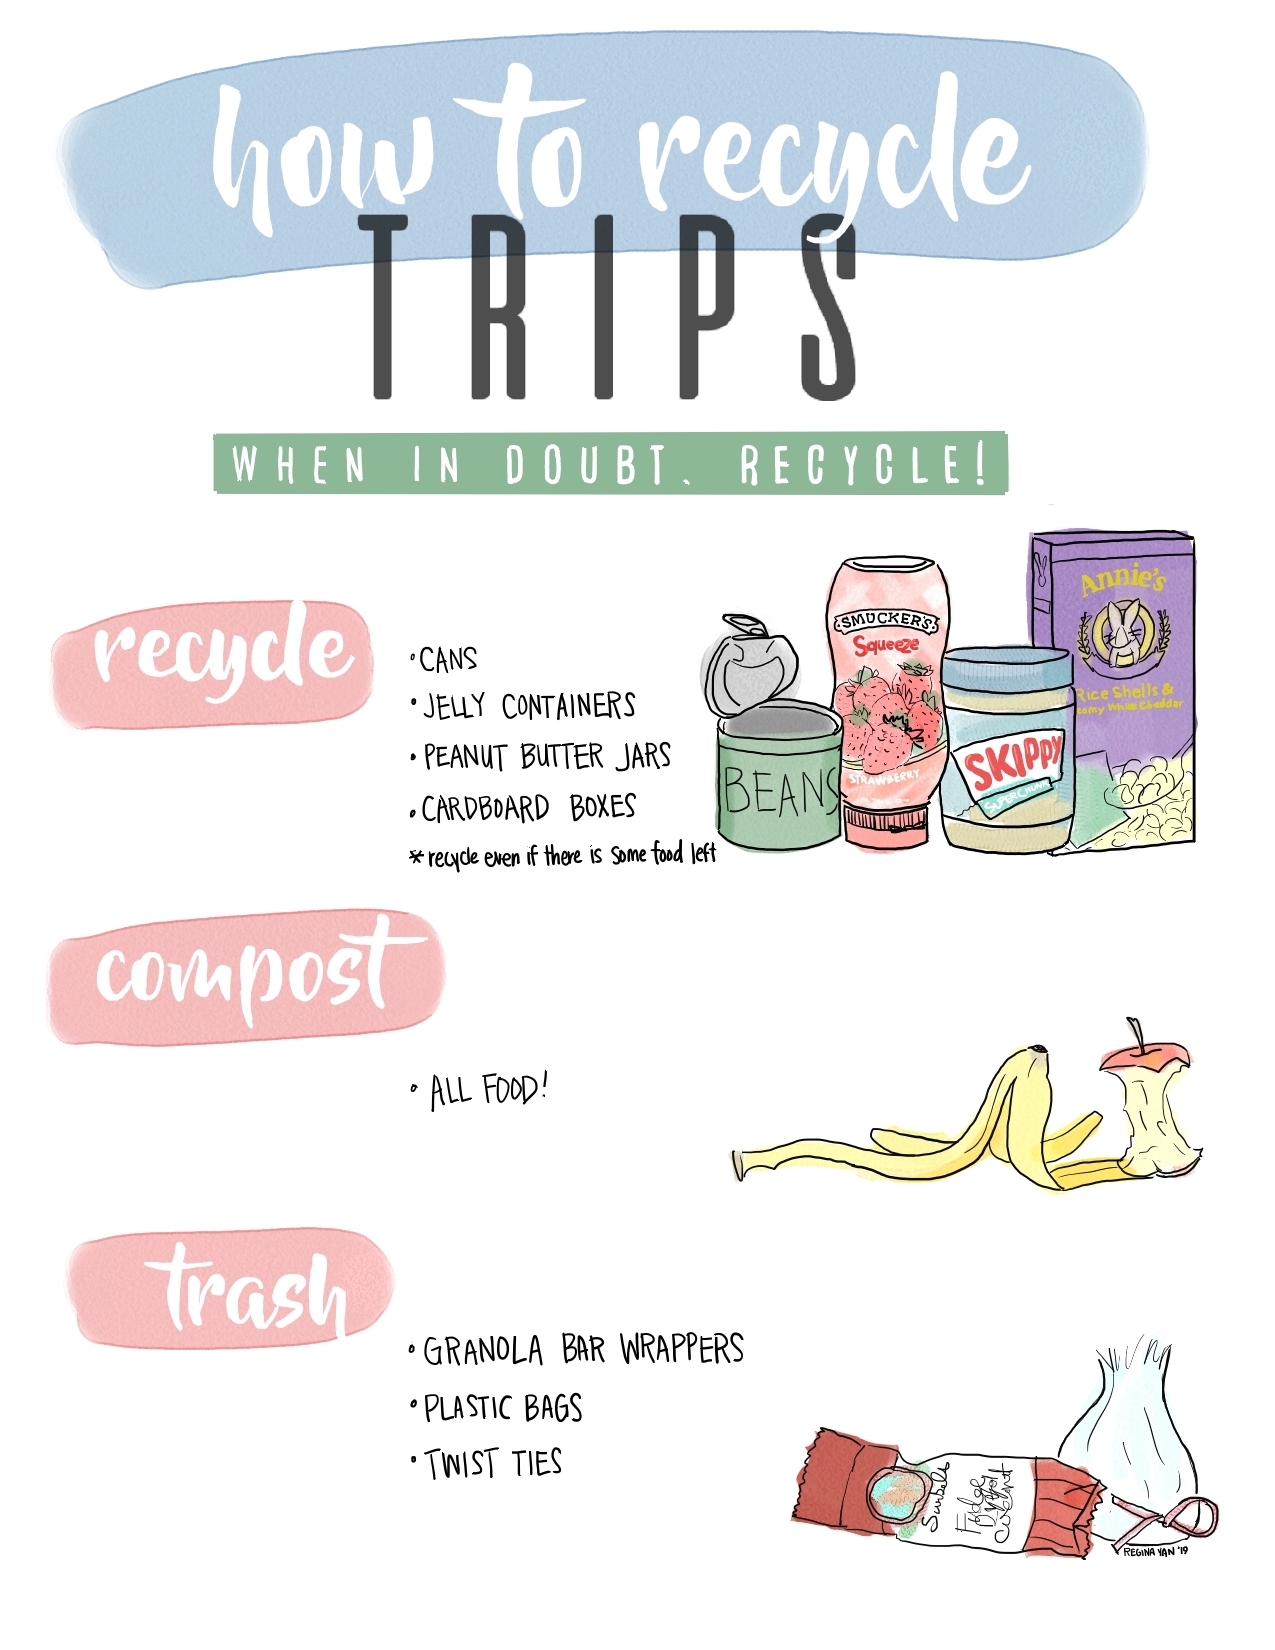 how to recycle
TRIPS
WHEN IN DOUBT, RECYCLE!
recycle
• CANS
• JELLY CONTAINERS
• PEANUT BUTTER JARS
• CARDBOARD BOXES
* recycle even if there is some food left
BEANS
SMUCKER'S
Squeeze
STRAWBERRY
SKIPPY
SUPER CHUNK
Annie's
Rice Shells &
eamy White Cheddar
compost
• ALL FOOD!
trash
• GRANOLA BAR WRAPPERS
• PLASTIC BAGS
• TWIST TIES
Fudge
REGINA YAN '19